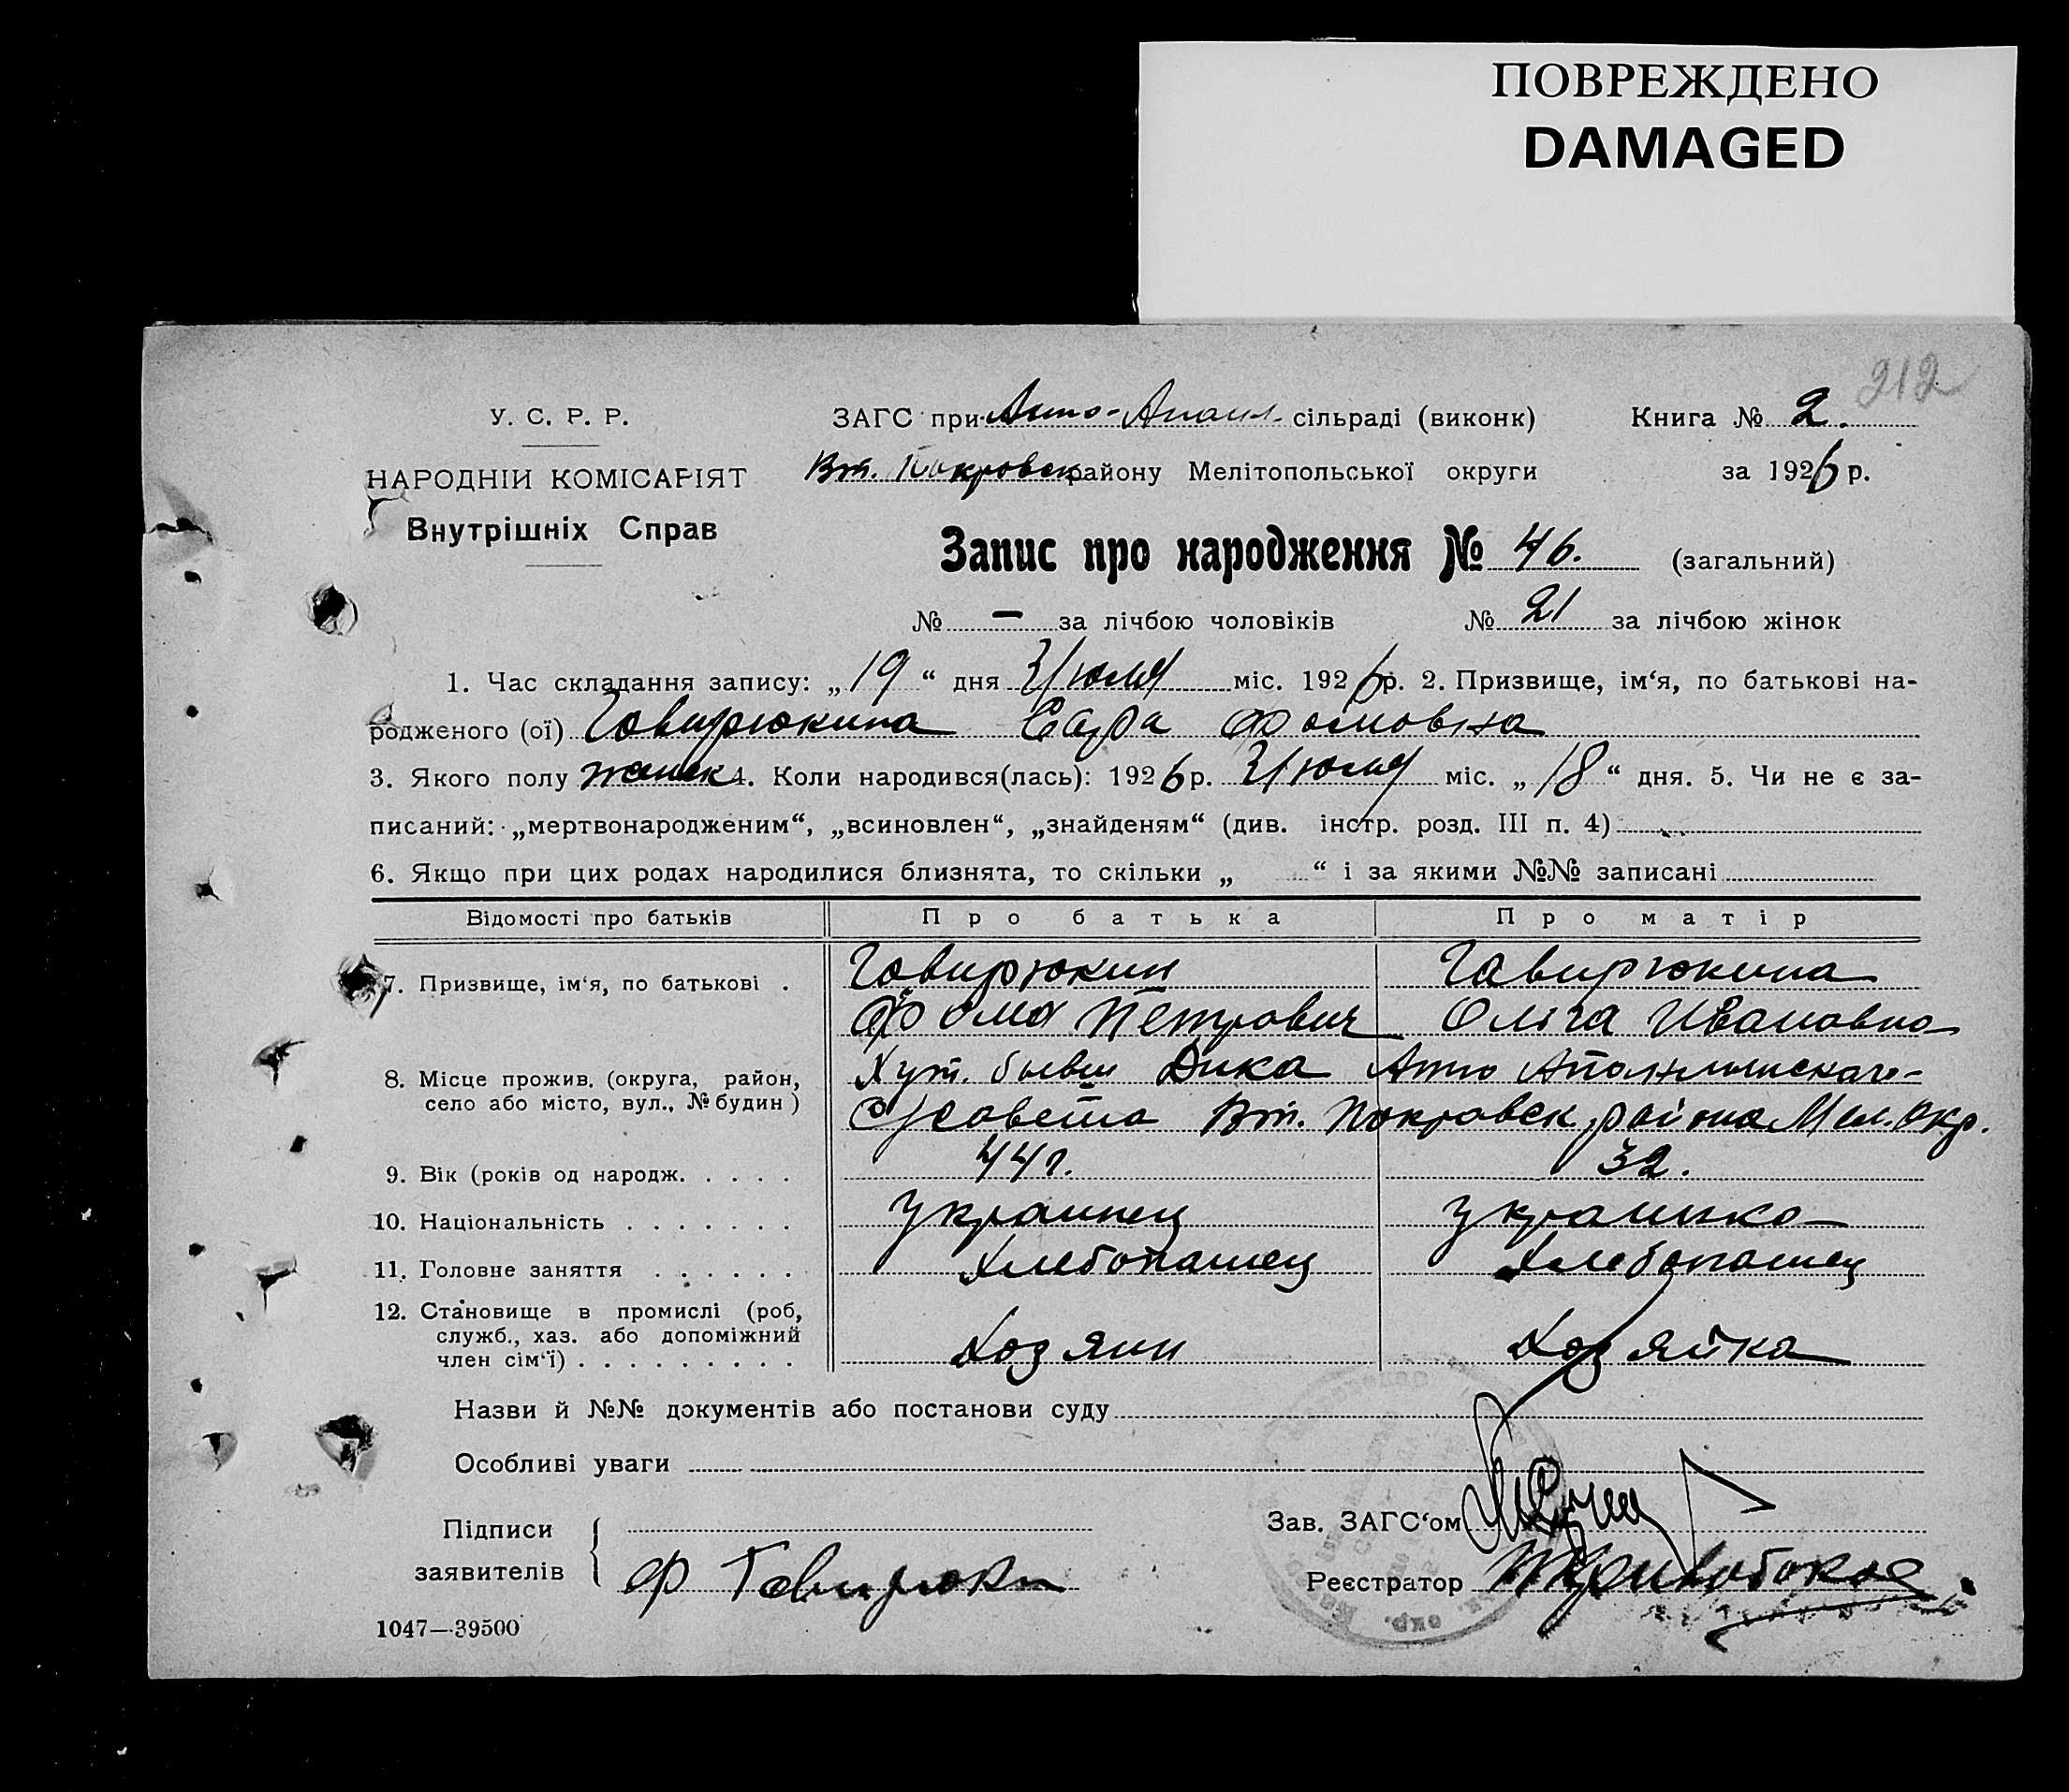 ПОВРЕЖДЕНО
DAMAGED
212
У. С. Р. Р.
ЗАГС при Анто- сільраді (виконк)
Книга № 2.
НАРОДНІЙ КОМІСАРІЯТ
Вт. Покровск району Мелітопольської округи
за 1926 р.
Внутрішніх Справ
Запис про народження № 46. (загальний)
№ — за лічбою чоловіків № 21 за лічбою жінок
1. Час складання запису: „19“ дня Июля міс. 1926 р. 2. Призвище, ім‘я, по батькові на-
родженого (ої) Говирюкина Сара Фомовна
3. Якого полу женск 4. Коли народився(лась): 1926 р. Июля міс. „18“ дня. 5. Чи не є за-
писаний: „мертвонародженим“, „всиновлен“, „знайденям“ (див. інстр. розд. III п. 4)
6. Якщо при цих родах народилися близнята, то скільки „ “ і за якими №№ записані
Відомості про батьків Про батька Про матір
7. Призвище, ім‘я, по батькові . Говирюкин Гавирюкина
Фома Петрович Ольга Ивановна
8. Місце прожив. (округа, район, Хут. бывш Дика Анто
село або місто, вул., № будин) С/совета Вт. Покровск района Мел. Окр.
9. Вік (років од народж. . . . . 44 г. 32.
10. Національність . . . . . . . Украинец Украинка
11. Головне заняття . . . . . . Хлебопашец Хлебопашец
12. Становище в промислі (роб,
служб., хаз. або допоміжний
член сім‘ї) . . . . . . . . . Хозяин Хозяйка
Назви й №№ документів або постанови суду
Особливі уваги
Підписи
заявителів
Ф Говирюкин
Зав. ЗАГС‘ом
Реєстратор
1047—39500